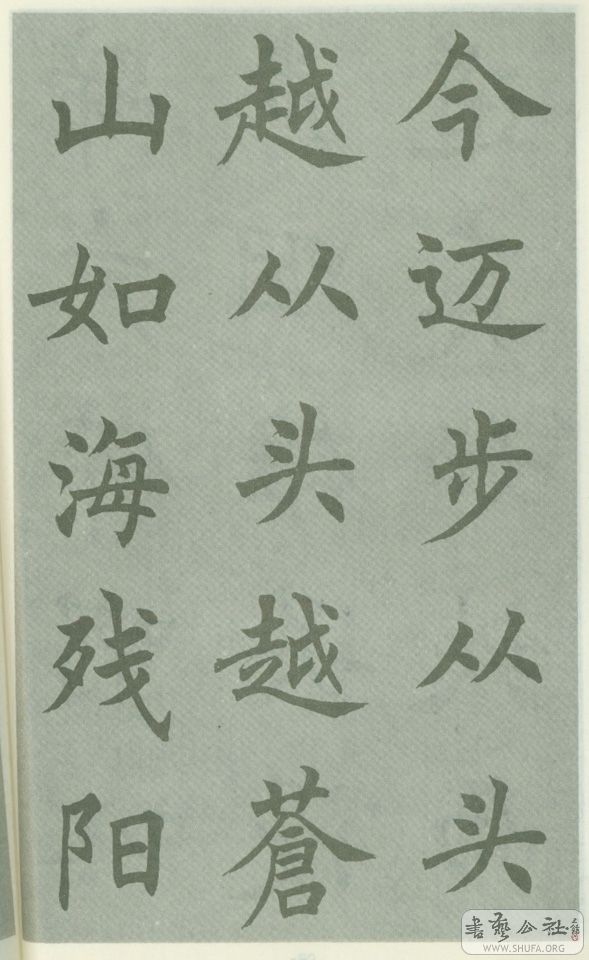 今迈步从头
越从头越蒼
山如海残阳
書藝公社
WWW.SHUFA.ORG